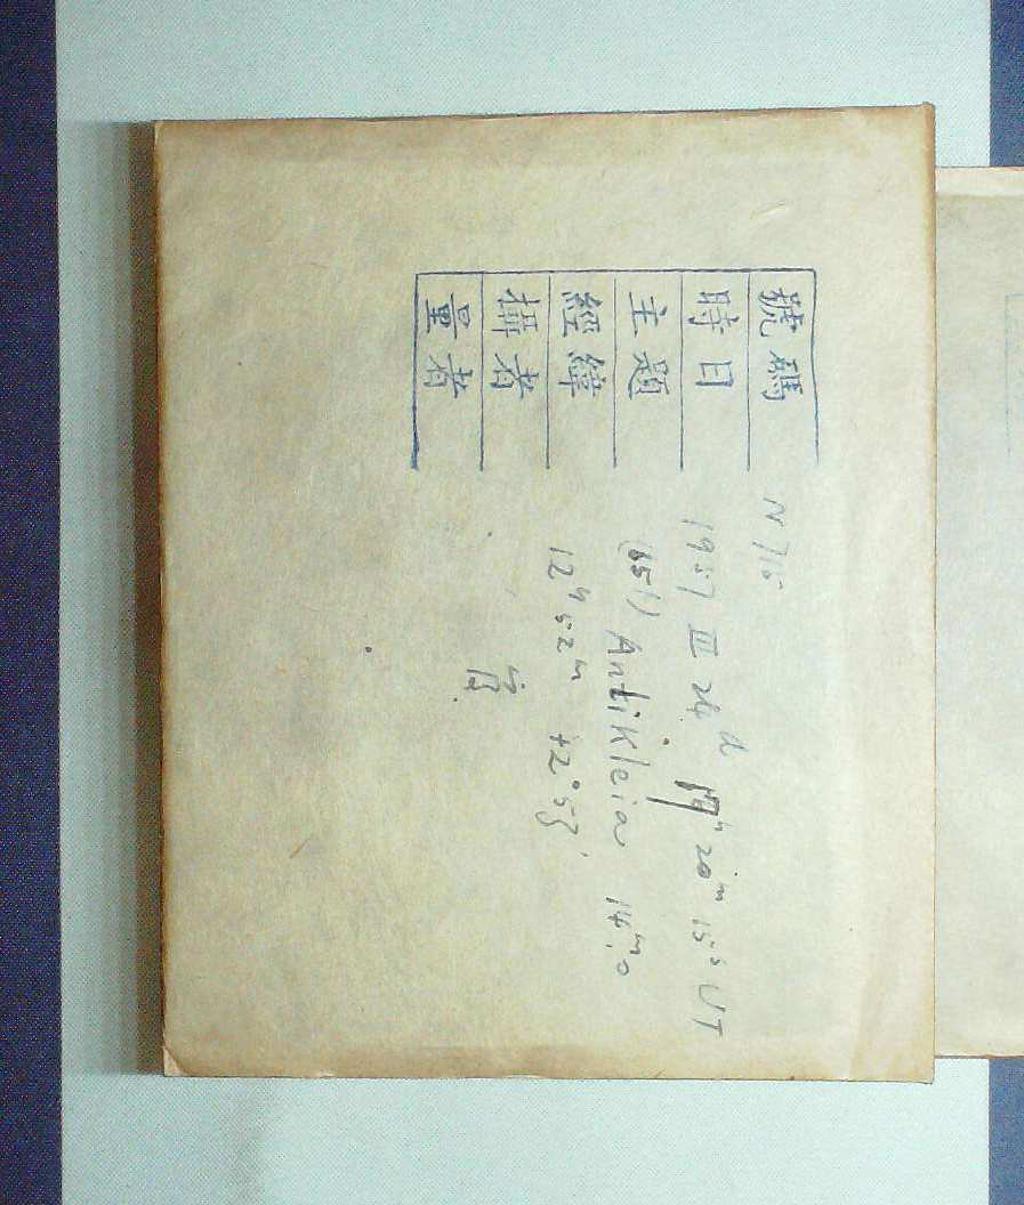 號碼 N 715
時日 1957 III 24ᵈ 17ʰ 20ᵐ 15ˢ UT
主題 (651) Antikleia 14ᵐ.0
經緯 12ʰ 52ᵐ +2°53'
攝者
量者